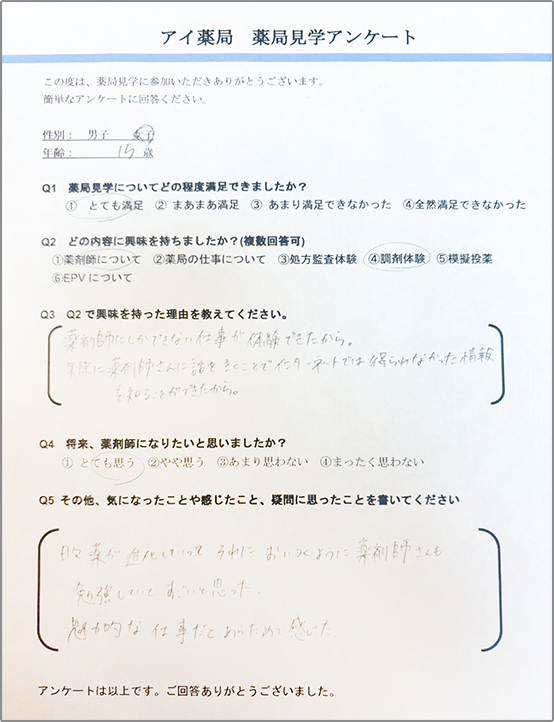 アイ薬局 薬局見学アンケート
この度は、薬局見学に参加いただきありがとうございます。
簡単なアンケートに回答ください。
性別： 男子 女子
年齢： 15 歳
Q1 薬局見学についてどの程度満足できましたか？
① とても満足 ② まあまあ満足 ③ あまり満足できなかった ④全然満足できなかった
Q2 どの内容に興味を持ちましたか？(複数回答可)
①薬剤師について ②薬局の仕事について ③処方監査体験 ④調剤体験 ⑤模擬投薬
⑥EPVについて
Q3 Q2で興味を持った理由を教えてください。
薬剤師にしかできない仕事が体験できたから。
実際に薬剤師さんに話をきくことでインターネットでは得られなかった情報
を知ることができたから。
Q4 将来、薬剤師になりたいと思いましたか？
① とても思う ②やや思う ③あまり思わない ④まったく思わない
Q5 その他、気になったことや感じたこと、疑問に思ったことを書いてください
日々薬が進化していって それに おいつくように 薬剤師さんも
勉強していて すごいと思った。
魅力的な仕事だと あらためて感じた。
アンケートは以上です。ご回答ありがとうございました。